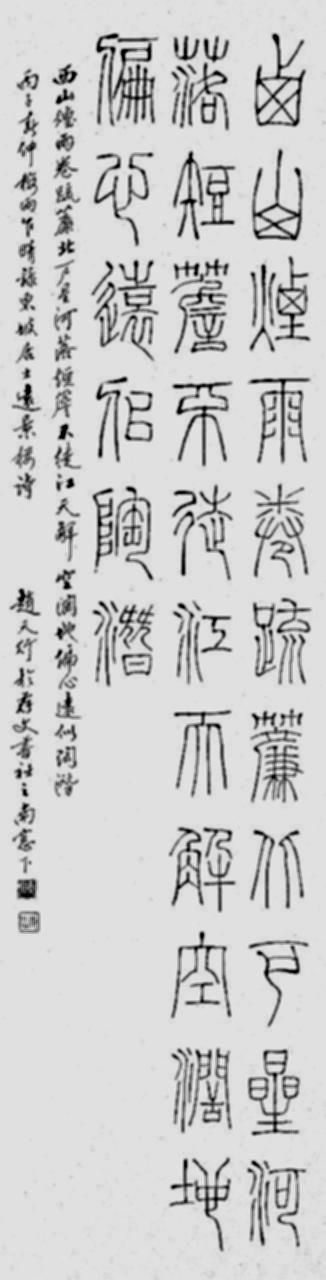 西山煙雨卷疏簾北戶星河
落短簷不徒江天解空闊地
偏心遠似陶潛
西山煙雨卷疏簾北戶星河落短簷不徒江天解空闊地偏心遠似陶潛
丙子春仲梅雨乍晴錄東坡居士遠景樓詩 趙天行於文書社之南窗下